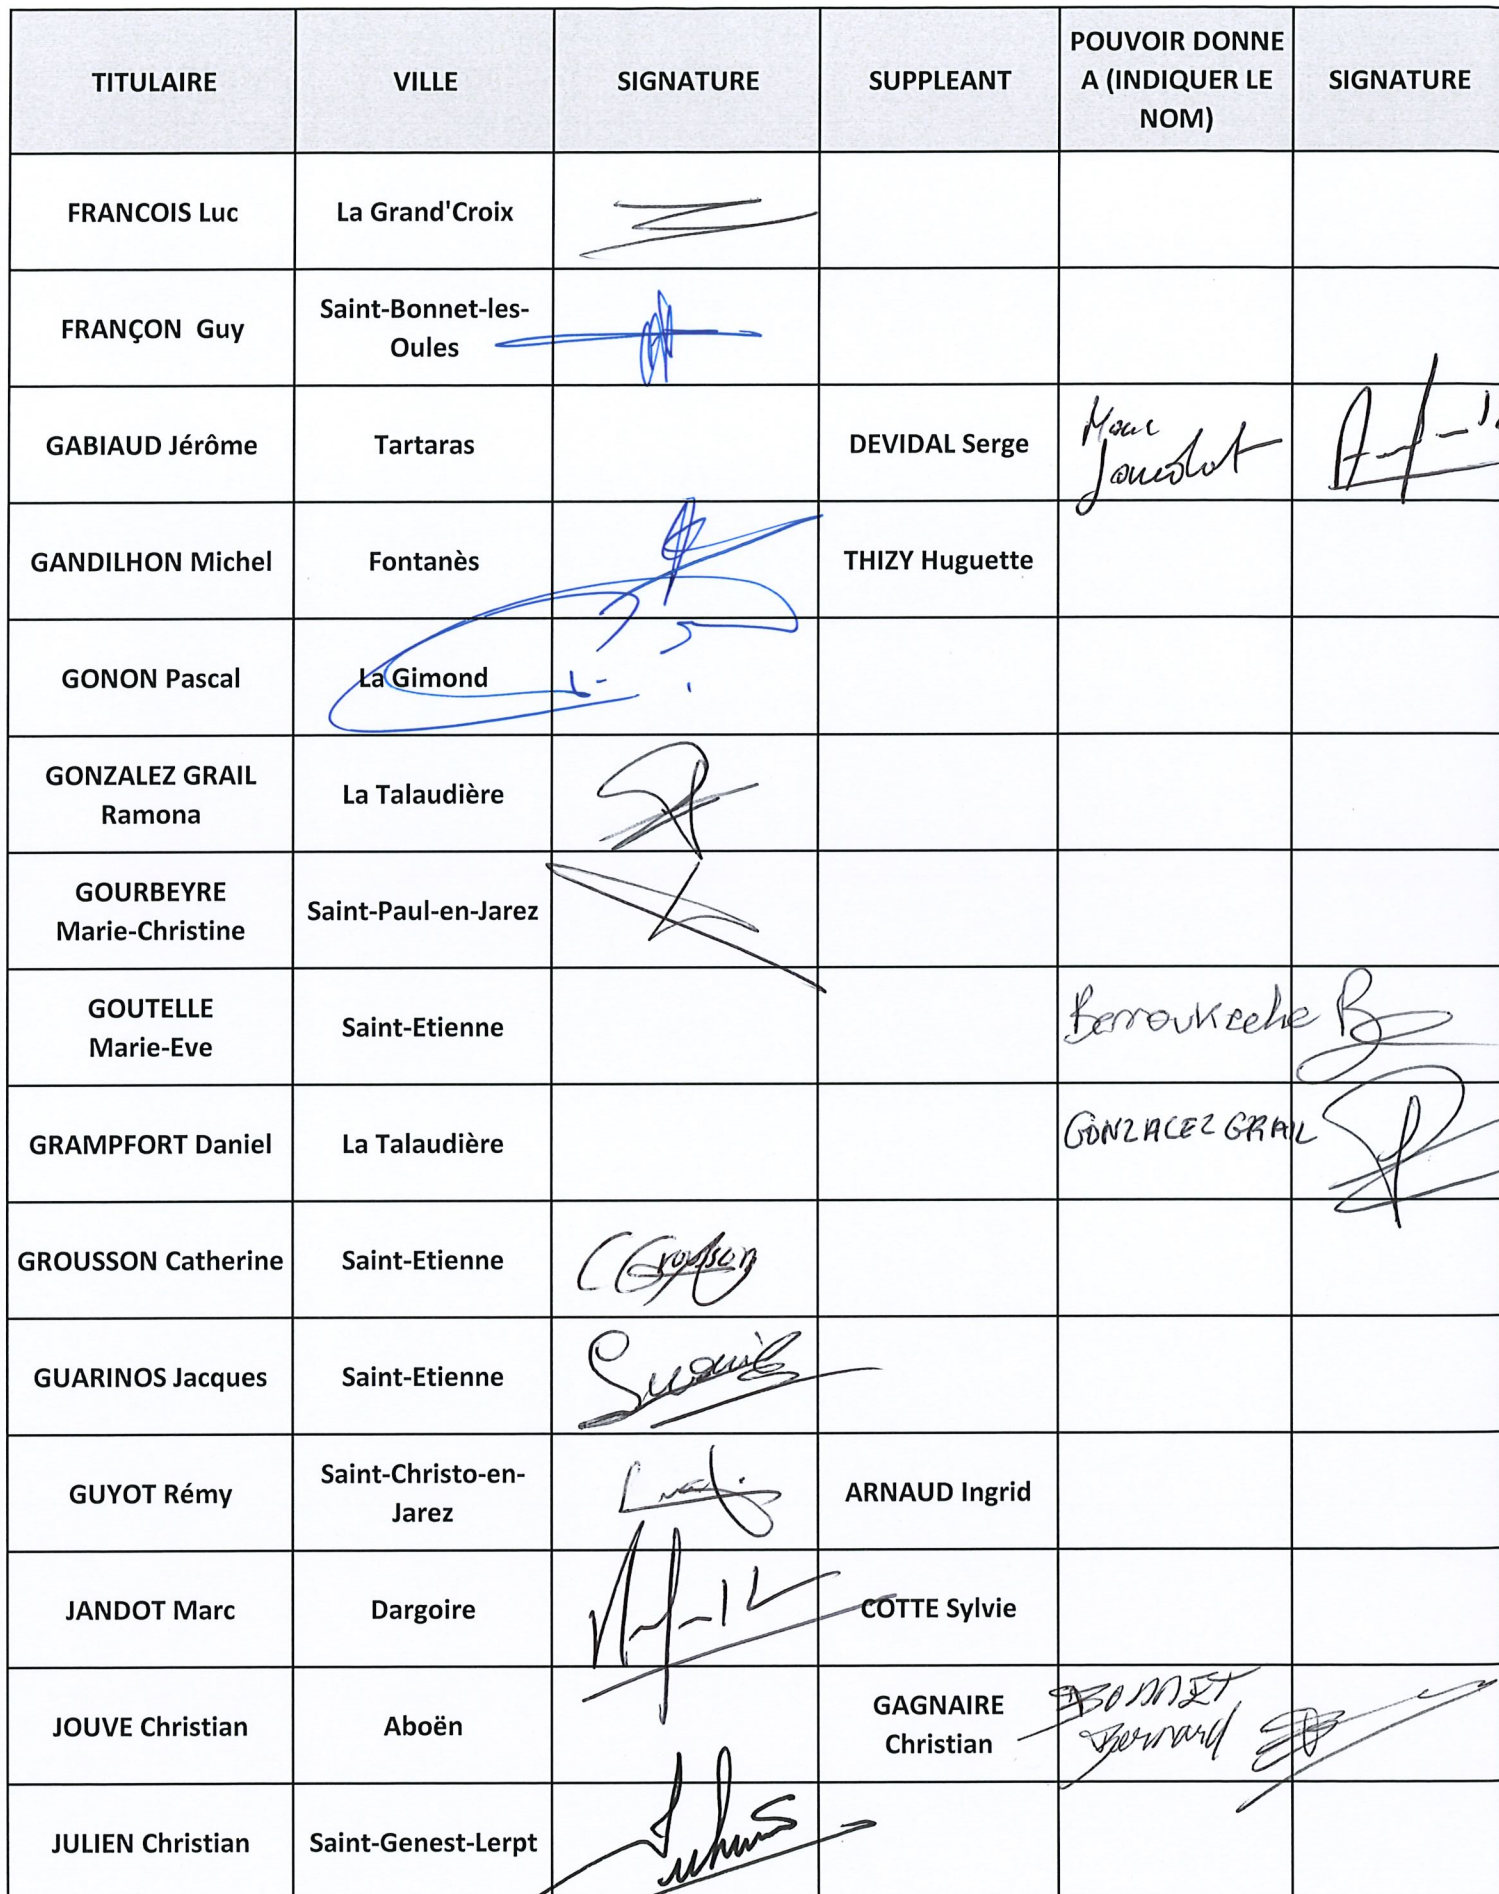 TITULAIRE VILLE SIGNATURE SUPPLEANT POUVOIR DONNE A (INDIQUER LE NOM) SIGNATURE
FRANCOIS Luc La Grand'Croix
FRANÇON Guy Saint-Bonnet-les-
Oules
GABIAUD Jérôme Tartaras DEVIDAL Serge Marc
GANDILHON Michel Fontanès THIZY Huguette
GONON Pascal La Gimond
GONZALEZ GRAIL
Ramona La Talaudière
GOURBEYRE
Marie-Christine Saint-Paul-en-Jarez
GOUTELLE
Marie-Eve Saint-Etienne Berroukeche
GRAMPFORT Daniel La Talaudière GONZALEZ GRAIL
GROUSSON Catherine Saint-Etienne C Grousson
GUARINOS Jacques Saint-Etienne
GUYOT Rémy Saint-Christo-en-
Jarez ARNAUD Ingrid
JANDOT Marc Dargoire COTTE Sylvie
JOUVE Christian Aboën GAGNAIRE
Christian BONNET
Bernard
JULIEN Christian Saint-Genest-Lerpt